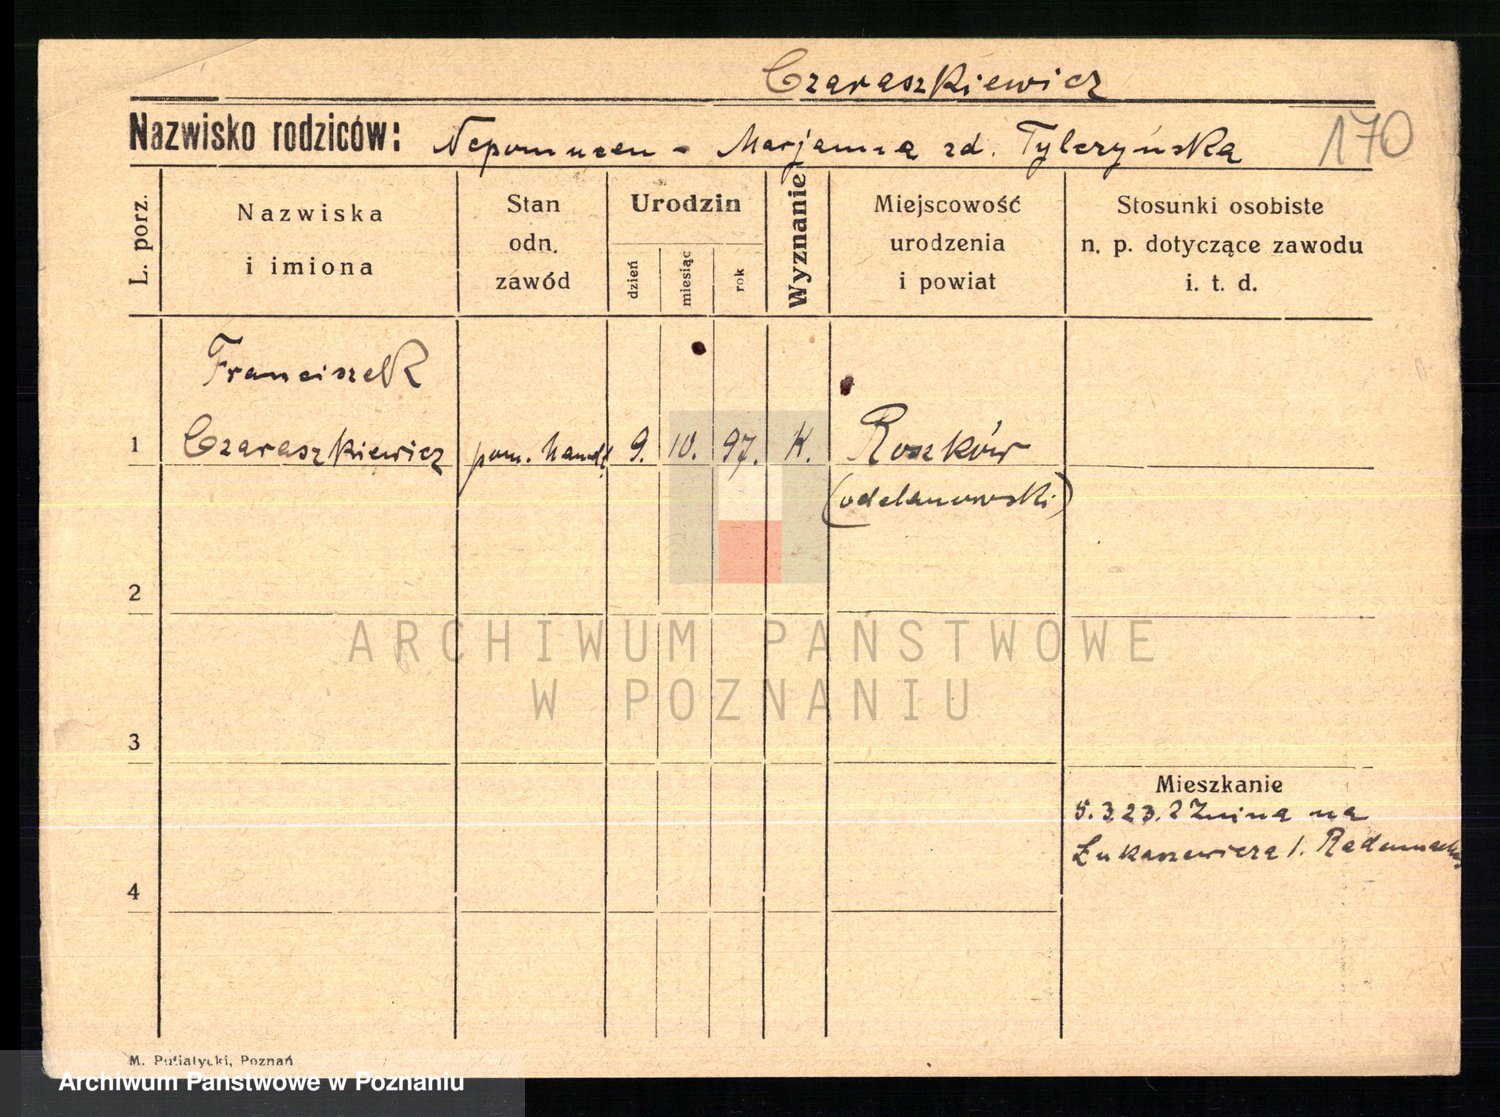 Czaraszkiewicz
Nazwisko rodziców: Nepomucen - Marjanna zd. Tylczyńska
170
L. porz.
Nazwiska
i imiona
Stan
odn.
zawód
Urodzin
dzień
miesiąc
rok
Wyznanie
Miejscowość
urodzenia
i powiat
Stosunki osobiste
n. p. dotyczące zawodu
i. t. d.
Franciszek
1 Czaraszkiewicz pom. handl 9. 10. 97. K. Roszków
(odolanowski)
2
3
4
Mieszkanie
5.3.23. z Żnina na
Łukaszewicza 1.
M. Putiatycki, Poznań
ARCHIWUM PAŃSTWOWE
W POZNANIU
Archiwum Państwowe w Poznaniu